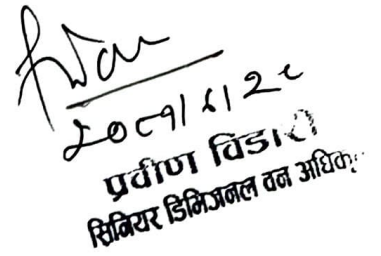 २०८१/६/२८
प्रवीण विडारी
सिनियर डिभिजनल वन अधिकृ